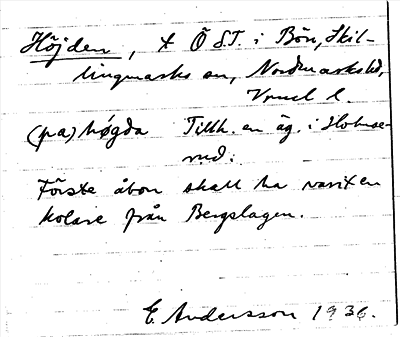 Höjden, + Ö ST. i Bön, Skil-
lingmarks sn, Nordmarks hd,
Vrml l.
(pa) høgda Tillh. en äg. i Holmse-
rud.
Förste åbon skall ha varit en
kolare från Bergslagen.
E. Andersson 1936.